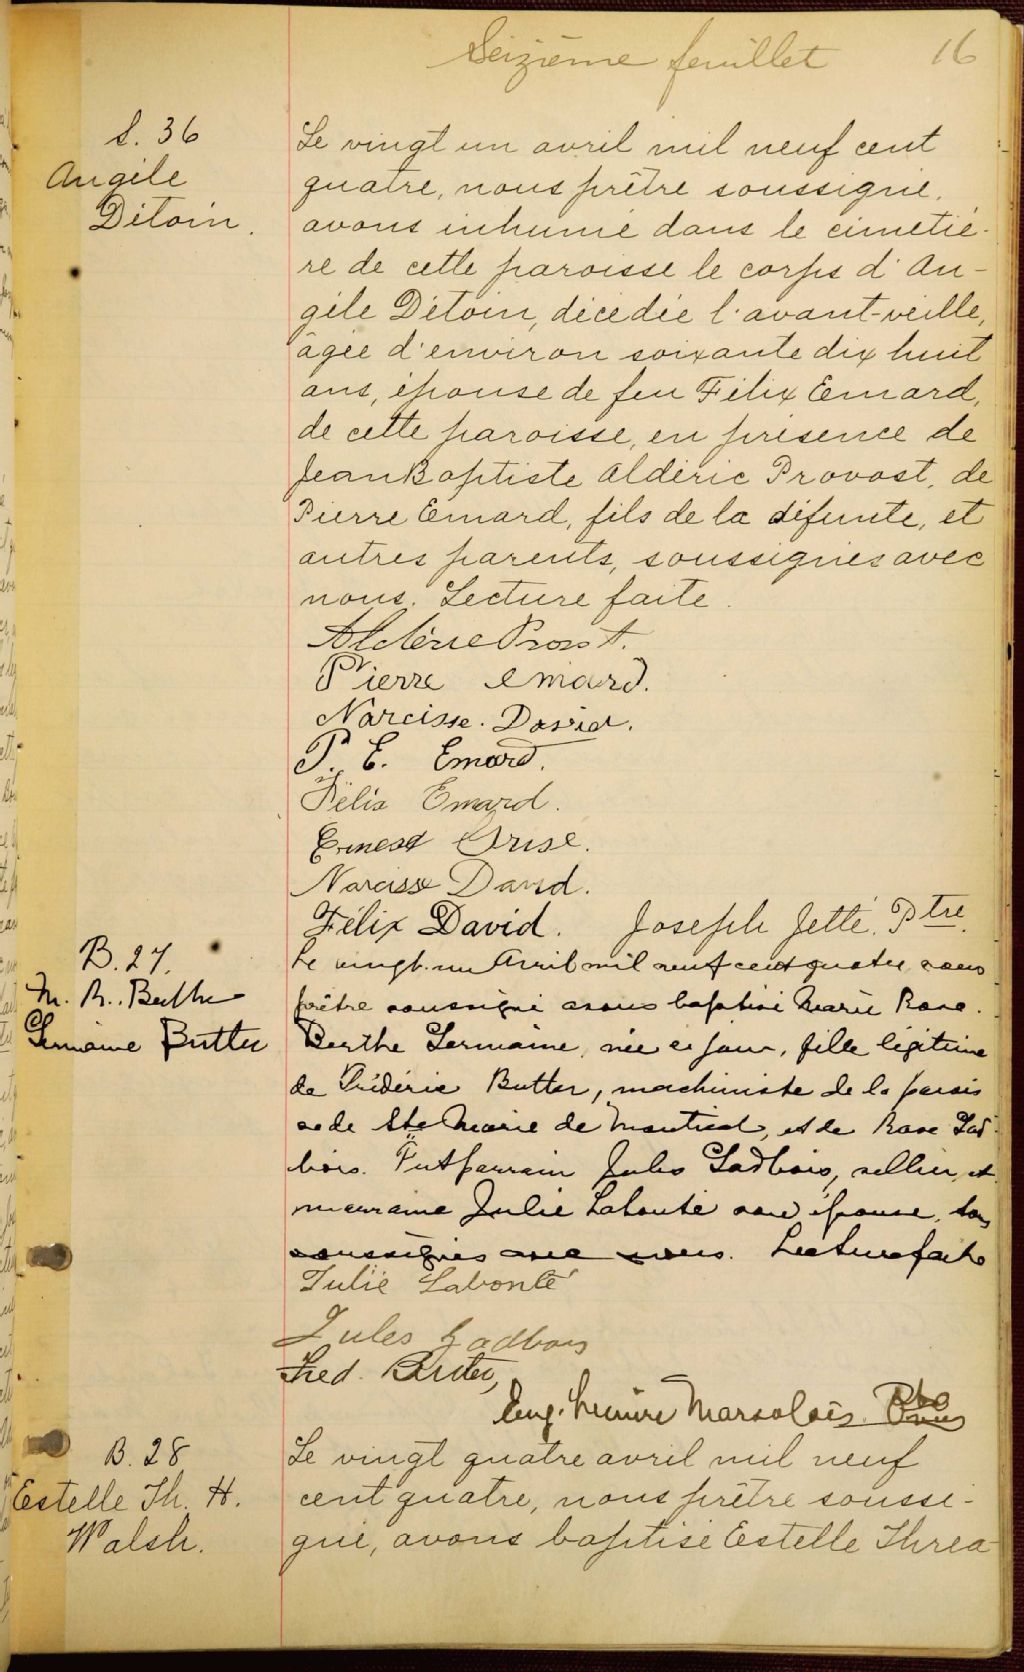 Seizième feuillet 16
S. 36
Angèle
Détoin.
Le vingt un avril mil neuf cent
quatre, nous prêtre soussigné,
avons inhumé dans le cimetiè-
re de cette paroisse le corps d'An-
gèle Détoin, décédée l'avant-veille,
âgée d'environ soixante dix huit
ans, épouse de feu Félix Emard,
de cette paroisse, en présence de
Jean Baptiste Aldéric Provost, de
Pierre Emard, fils de la défunte, et
autres parents, soussignés avec
nous. Lecture faite.
Pierre Emard.
Narcisse. David.
P. E. Emard.
Félix Emard.
Ernest Brise.
Narcisse David.
Félix David. Joseph Jetté. Ptre.
B. 27.
M. R. Berthe
Germaine Butler
Le vingt-un Avril mil neuf cent quatre nous
prêtre soussigné avons baptisé Marie Rose
Berthe Germaine, née ce jour, fille légitime
de Frédéric Butler, machiniste de la parois
se de Ste Marie de Montréal, et de Rose Gad
bois. Fut parrain Jules Gadbois, sellier, et
marraine Julie Labonté son épouse,
soussignés avec nous. Lecture faite
Julie Labonté
Jules Gadbois
Fred. Butler,
Eug. Marsolais Ptre
B. 28
Estelle Th. H.
Walsh.
Le vingt quatre avril mil neuf
cent quatre, nous prêtre soussi-
gné, avons baptisé Estelle Threa-